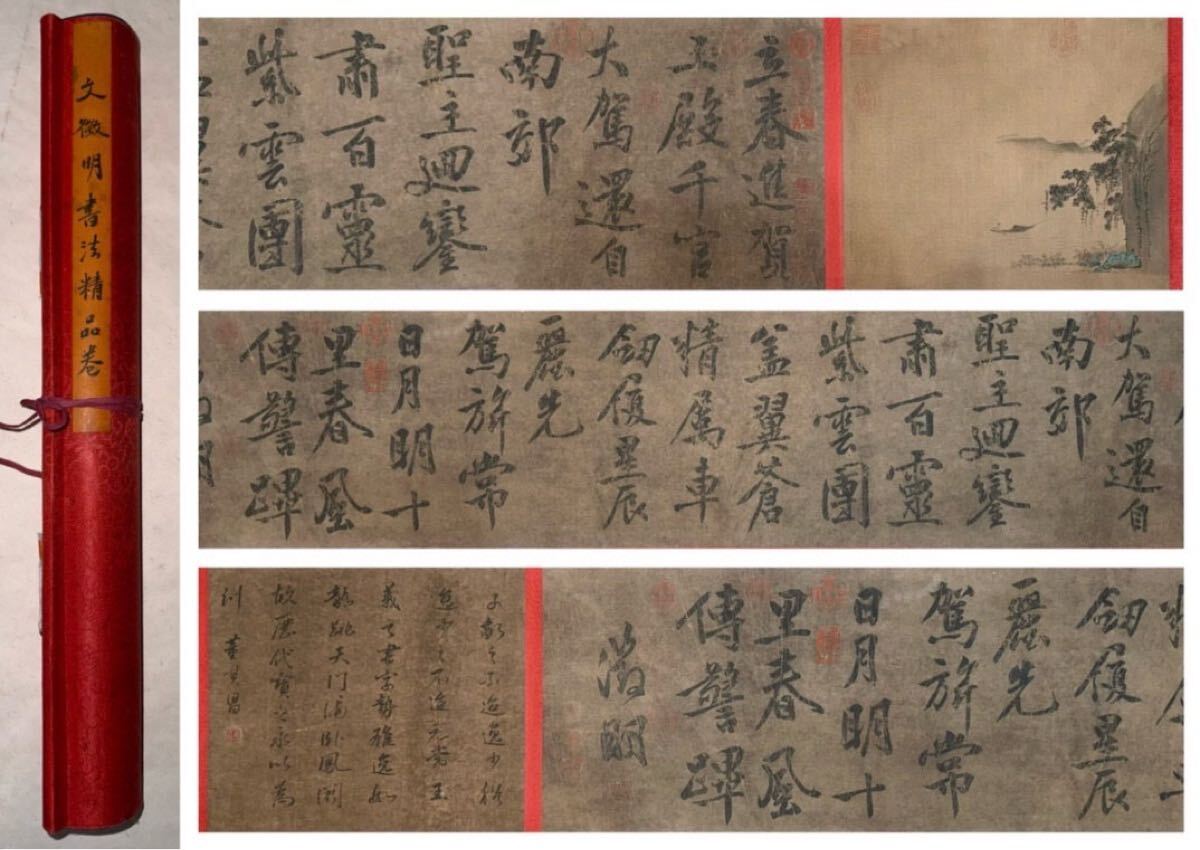 文徴明書法精品卷
立春進賀
玉殿千官
大駕還自
南郊
聖主迴鑾
肅百靈
紫雲團
大駕還自
南郊
聖主迴鑾
肅百靈
紫雲團
盖翼蒼
精属車
劒履星辰
麗先
駕旂常
日月明十
里春風
傳警蹕
劒履星辰
麗先
駕旂常
日月明十
里春風
傳警蹕
徵明
子敬之不迨逸少猶
逸少之不迨元常王
羲之書字勢雄逸如
龍跳天門虎卧鳳閣
故歷代寶之永以為
訓 董其昌